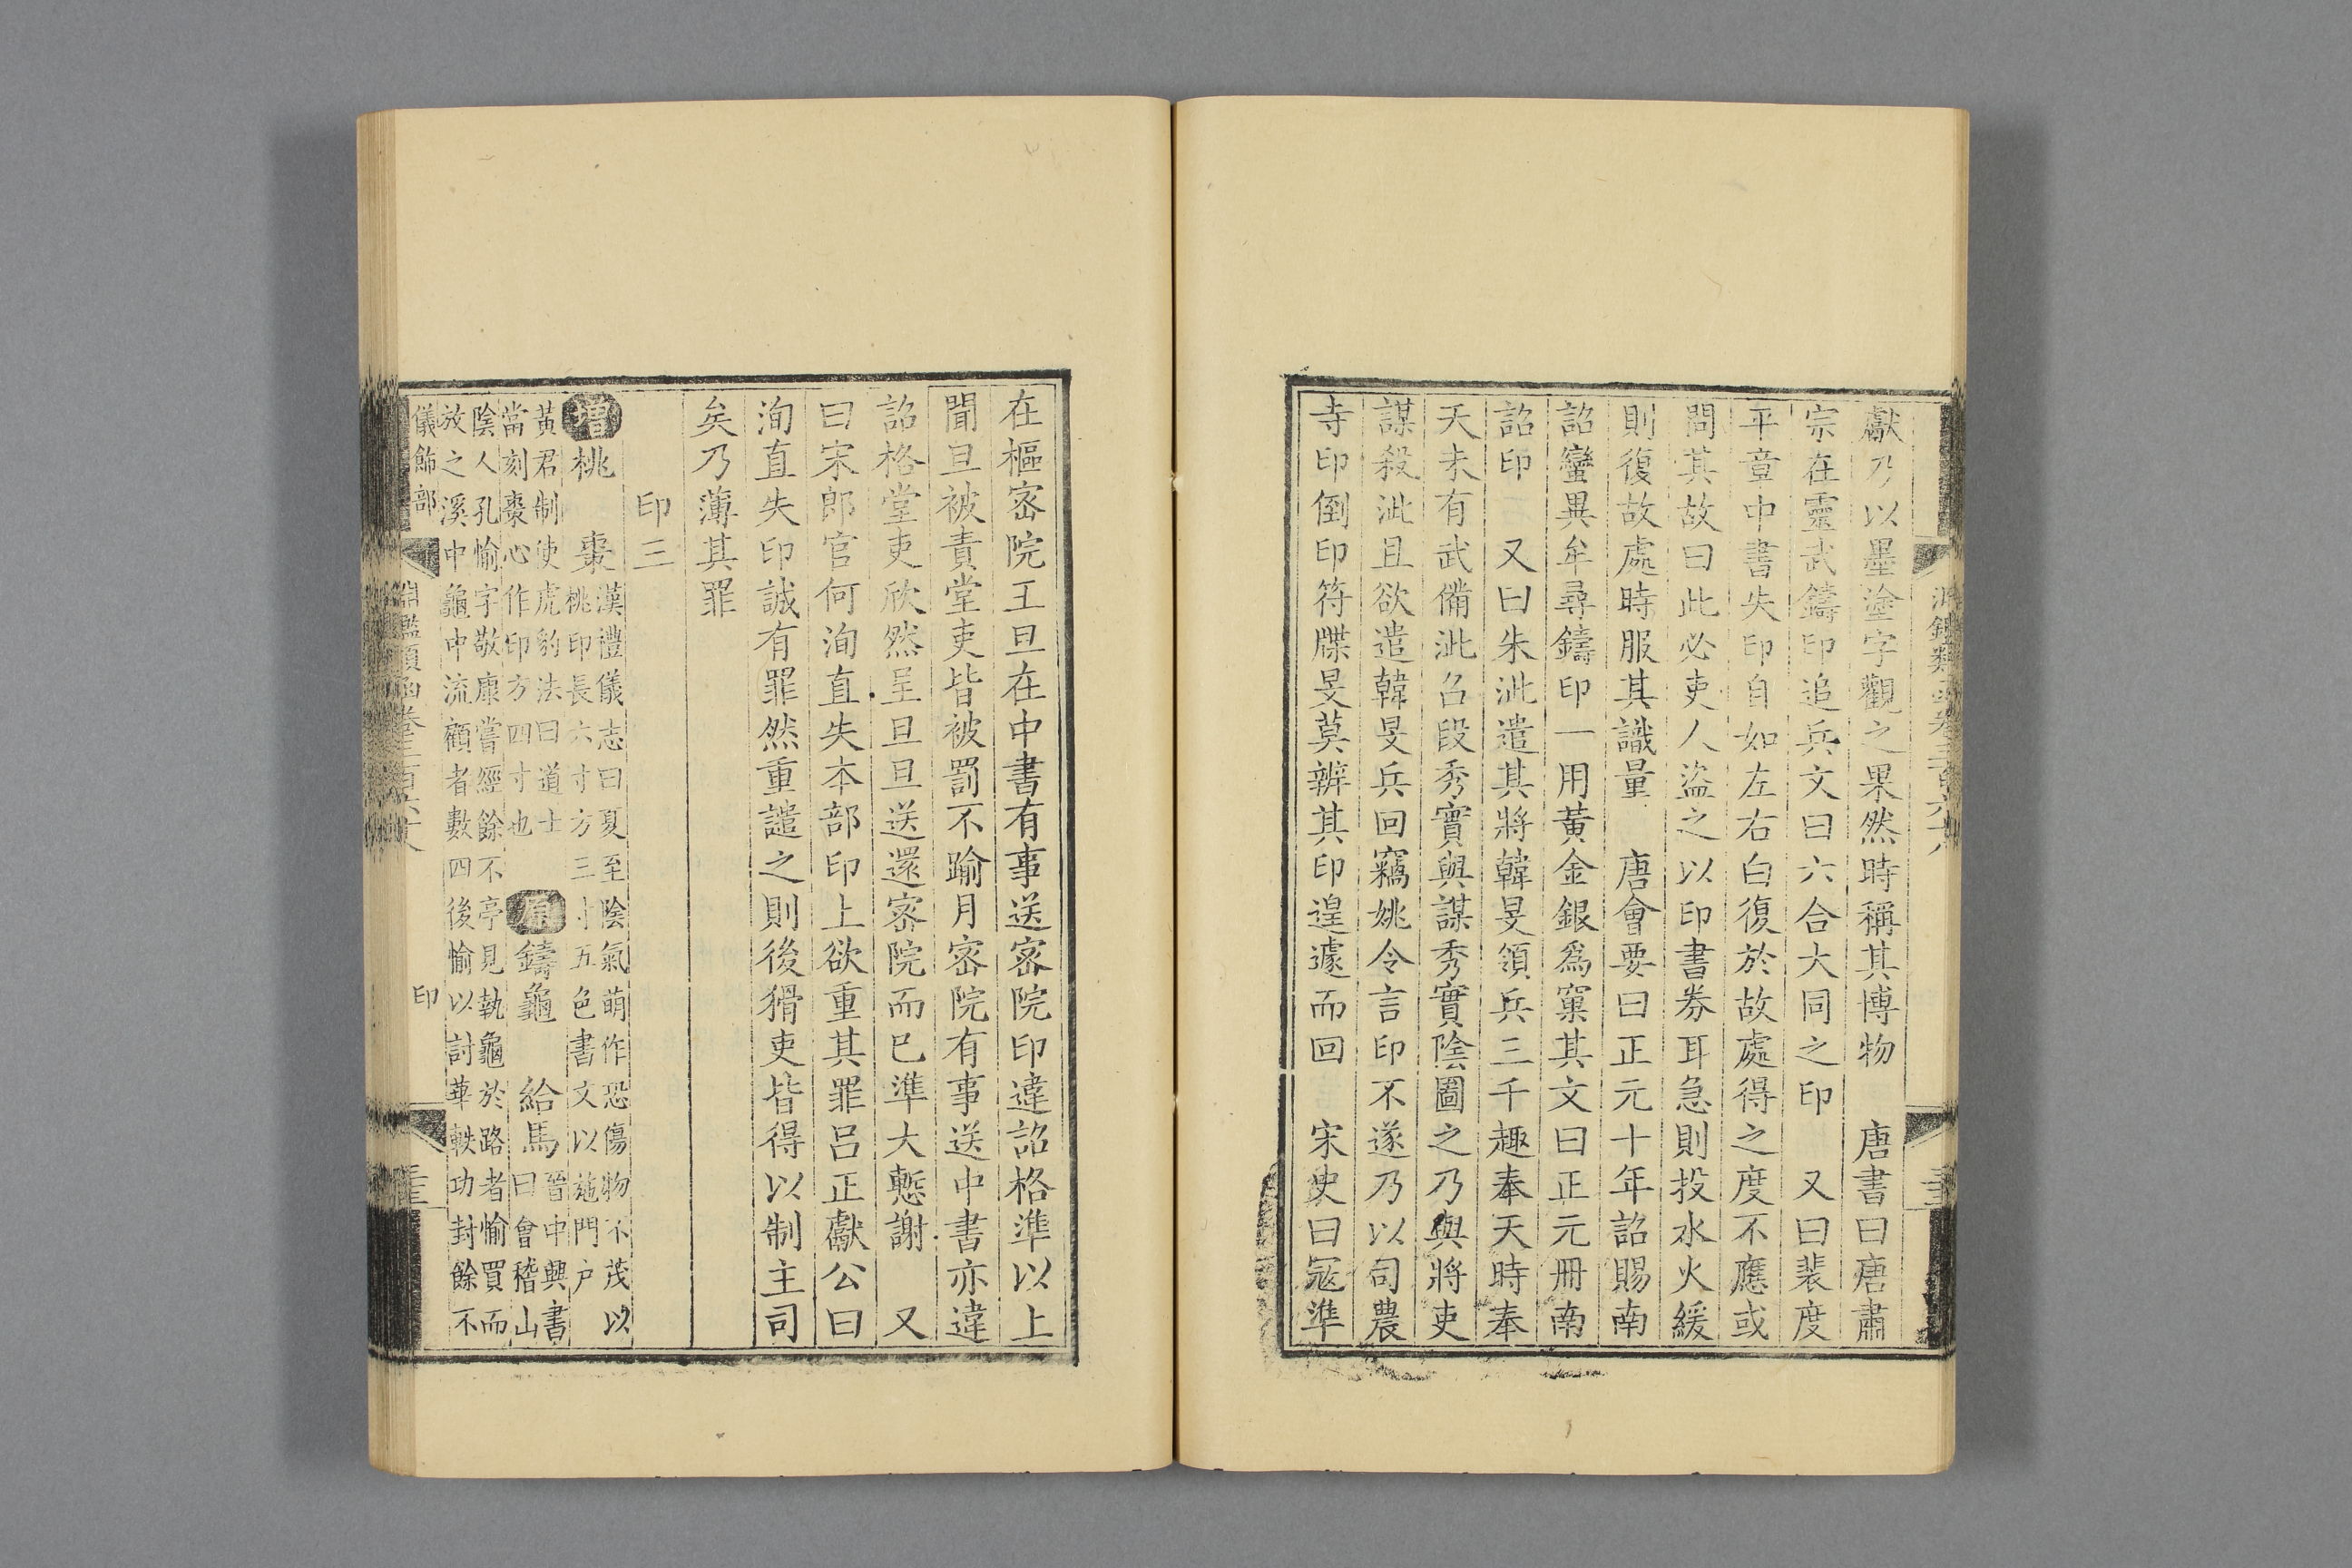 獻乃以墨塗字觀之果然時稱其博物　唐書曰唐肅
宗在靈武鑄印追兵文曰六合大同之印　又曰裴度
平章中書失印自如左右白復於故處得之度不應或
問其故曰此必吏人盜之以印書券耳急則投水火緩
則復故處時服其識量　唐會要曰正元十年詔賜南
詔蠻異牟尋鑄印一用黃金銀爲窠其文曰正元冊南
詔印　又曰朱泚遣其將韓旻領兵三千趣奉天時奉
天未有武備泚召段秀實與謀秀實陰圖之乃與將吏
謀殺泚且欲遣韓旻兵回竊姚令言印不遂乃以司農
寺印倒印符牒旻莫辨其印遑遽而回　宋史曰寇準
在樞密院王旦在中書有事送密院印違詔格準以上
聞旦被責堂吏皆被罰不踰月密院有事送中書亦違
詔格堂吏欣然呈旦旦送還密院而已準大慙謝　又
曰宋郎官何洵直失本部印上欲重其罪呂正獻公曰
洵直失印誠有罪然重譴之則後猾吏皆得以制主司
矣乃薄其罪
印三
增桃　棗漢禮儀志曰夏至陰氣萌作恐傷物不茂以
桃印長六寸方三寸五色書文以施門戶
黃君制使虎豹法曰道士
當刻棗心作印方四寸也　原鑄龜　給馬晉中興書
曰會稽山
陰人孔愉字敬康嘗經餘不亭見執龜於路者愉買而
放之溪中龜中流顧者數四後愉以討華軼功封餘不
儀飾部　淵鑑類函卷三百六十八　印